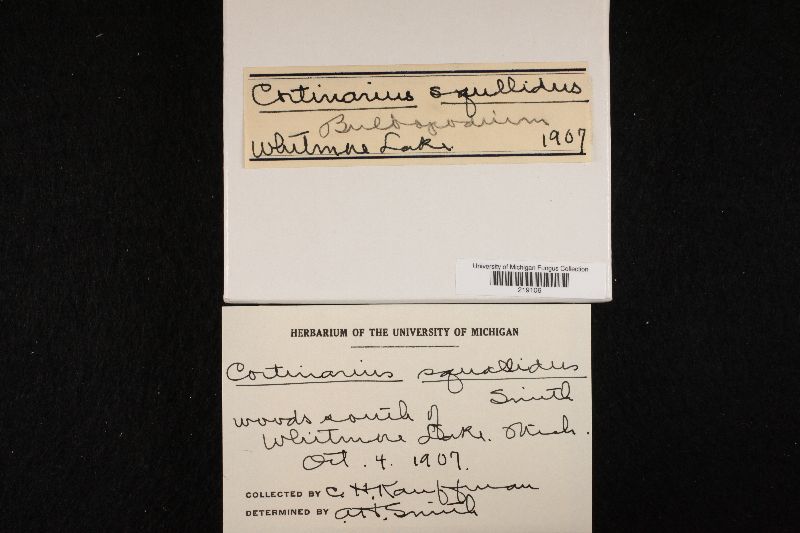 Cortinarius squllidus
Bulbopodium
Whitmore Lake. 1907
University of Michigan Fungus Collection
219106
HERBARIUM OF THE UNIVERSITY OF MICHIGAN
Cortinarius squallidus
Smith
woods south of
Whitmore Lake. Mich.
Oct. 4. 1907.
COLLECTED BY C. H. Kauffman
DETERMINED BY A. H. Smith